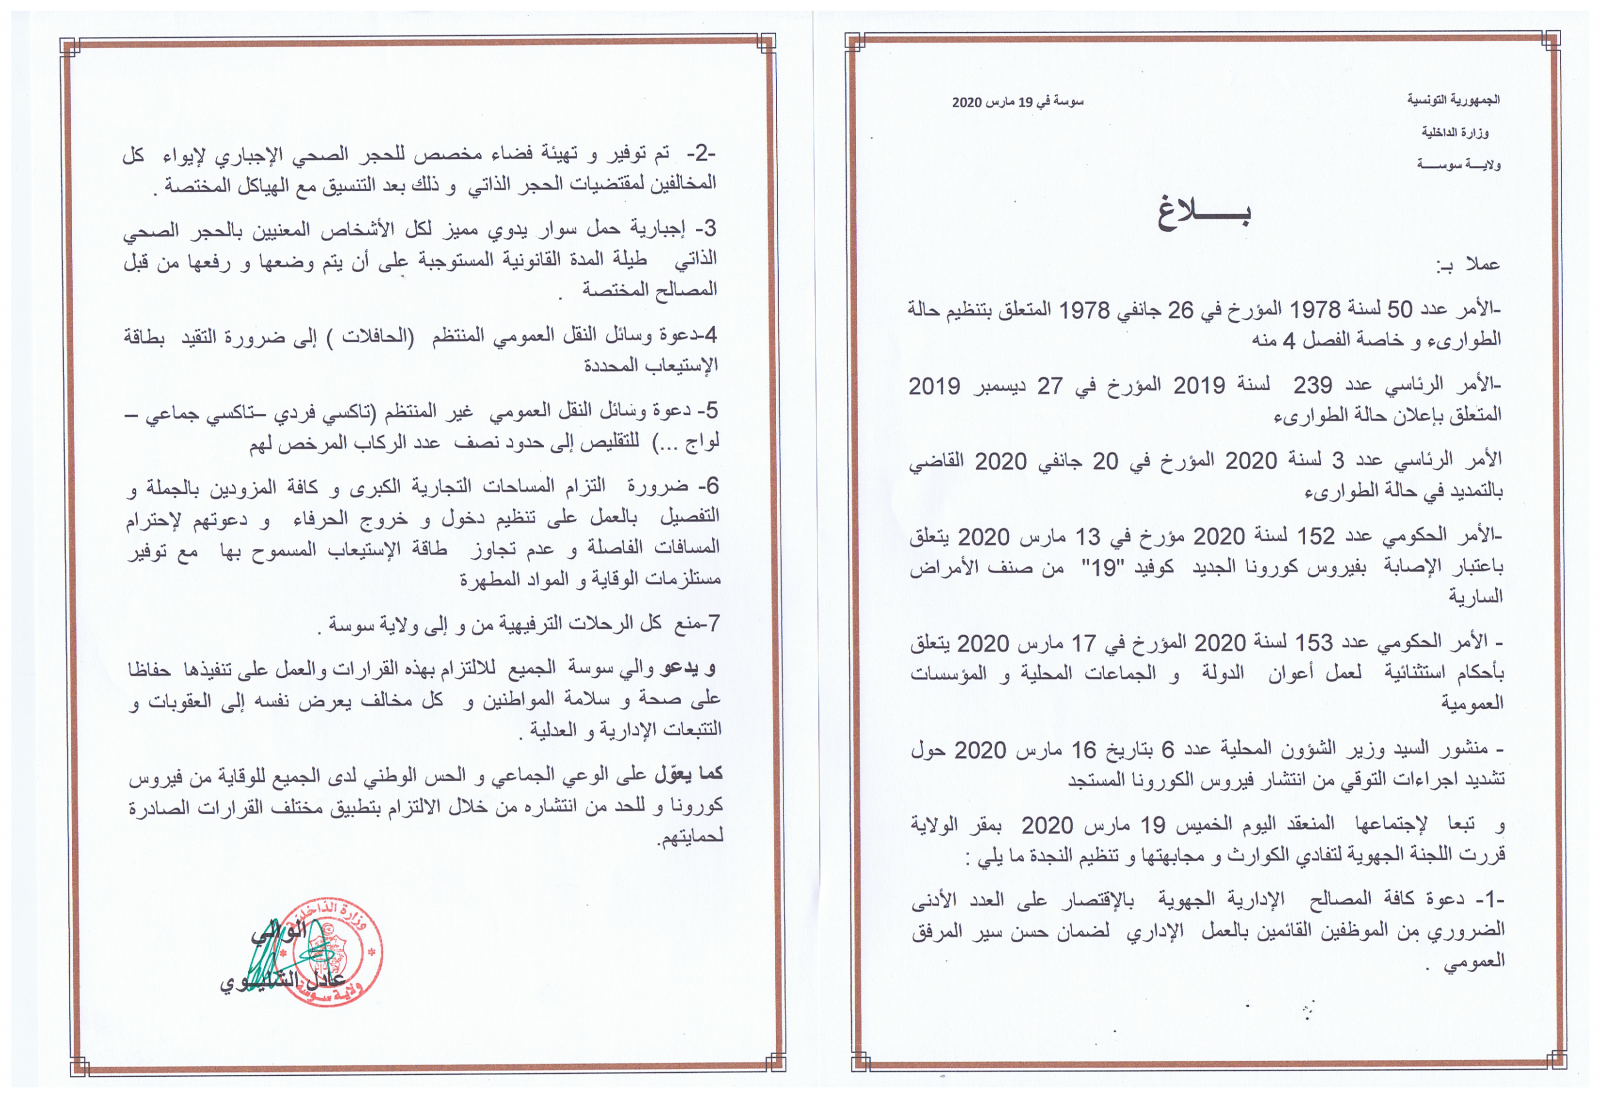 الجمهورية التونسية
سوسة في 19 مارس 2020
وزارة الداخلية
ولايـــة سوســـــة
بـــــلاغ
عملا بـ:
-الأمر عدد 50 لسنة 1978 المؤرخ في 26 جانفي 1978 المتعلق بتنظيم حالة
الطوارىء و خاصة الفصل 4 منه
-الأمر الرئاسي عدد 239 لسنة 2019 المؤرخ في 27 ديسمبر 2019
المتعلق بإعلان حالة الطوارىء
الأمر الرئاسي عدد 3 لسنة 2020 المؤرخ في 20 جانفي 2020 القاضي
بالتمديد في حالة الطوارىء
-الأمر الحكومي عدد 152 لسنة 2020 مؤرخ في 13 مارس 2020 يتعلق
باعتبار الإصابة بفيروس كورونا الجديد كوفيد "19" من صنف الأمراض
السارية
- الأمر الحكومي عدد 153 لسنة 2020 المؤرخ في 17 مارس 2020 يتعلق
بأحكام استثنائية لعمل أعوان الدولة و الجماعات المحلية و المؤسسات
العمومية
- منشور السيد وزير الشؤون المحلية عدد 6 بتاريخ 16 مارس 2020 حول
تشديد اجراءات التوقي من انتشار فيروس الكورونا المستجد
و تبعا لإجتماعها المنعقد اليوم الخميس 19 مارس 2020 بمقر الولاية
قررت اللجنة الجهوية لتفادي الكوارث و مجابهتها و تنظيم النجدة ما يلي :
-1- دعوة كافة المصالح الإدارية الجهوية بالإقتصار على العدد الأدنى
الضروري من الموظفين القائمين بالعمل الإداري لضمان حسن سير المرفق
العمومي .
-2- تم توفير و تهيئة فضاء مخصص للحجر الصحي الإجباري لإيواء كل
المخالفين لمقتضيات الحجر الذاتي و ذلك بعد التنسيق مع الهياكل المختصة .
3- إجبارية حمل سوار يدوي مميز لكل الأشخاص المعنيين بالحجر الصحي
الذاتي طيلة المدة القانونية المستوجبة على أن يتم وضعها و رفعها من قبل
المصالح المختصة .
4-دعوة وسائل النقل العمومي المنتظم (الحافلات ) إلى ضرورة التقيد بطاقة
الإستيعاب المحددة
5- دعوة وسائل النقل العمومي غير المنتظم (تاكسي فردي –تاكسي جماعي –
لواج ...) للتقليص إلى حدود نصف عدد الركاب المرخص لهم
6- ضرورة التزام المساحات التجارية الكبرى و كافة المزودين بالجملة و
التفصيل بالعمل على تنظيم دخول و خروج الحرفاء و دعوتهم لإحترام
المسافات الفاصلة و عدم تجاوز طاقة الإستيعاب المسموح بها مع توفير
مستلزمات الوقاية و المواد المطهرة
7-منع كل الرحلات الترفيهية من و إلى ولاية سوسة .
و يدعو والي سوسة الجميع للالتزام بهذه القرارات والعمل على تنفيذها حفاظا
على صحة و سلامة المواطنين و كل مخالف يعرض نفسه إلى العقوبات و
التتبعات الإدارية و العدلية .
كما يعوّل على الوعي الجماعي و الحس الوطني لدى الجميع للوقاية من فيروس
كورونا و للحد من انتشاره من خلال الالتزام بتطبيق مختلف القرارات الصادرة
لحمايتهم.
وزارة الداخلية
الوالي
عادل الشليـوي
ولاية سوسة